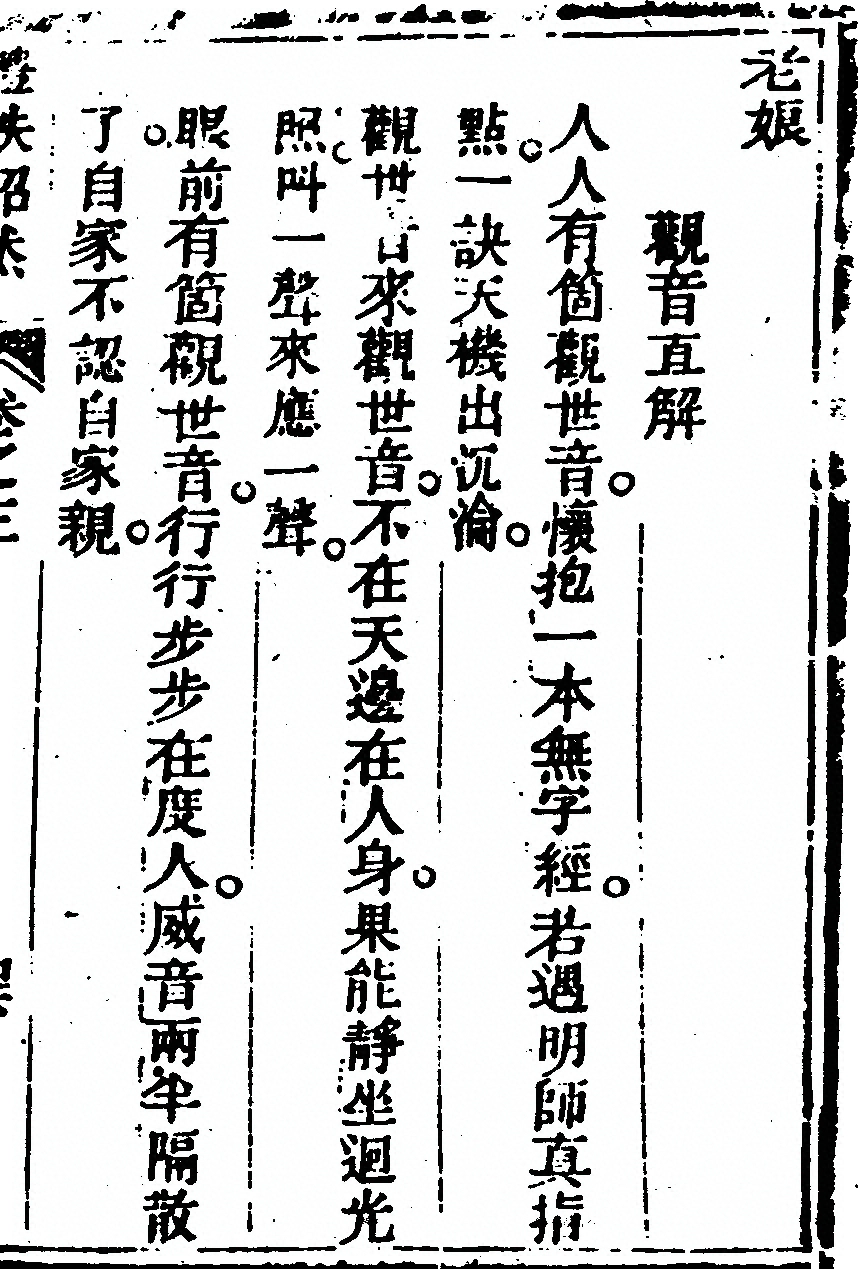 老娘
觀音直解
人人有箇觀世音。懷抱一本無字經。若遇明師真指
點。一訣天機出沉淪。
觀世音來觀世音。不在天邊在人身。果能靜坐迴光
照。叫一聲來應一聲。
眼前有箇觀世音。行行步步在度人。威音兩半隔散
了。自家不認自家親。
卷之三